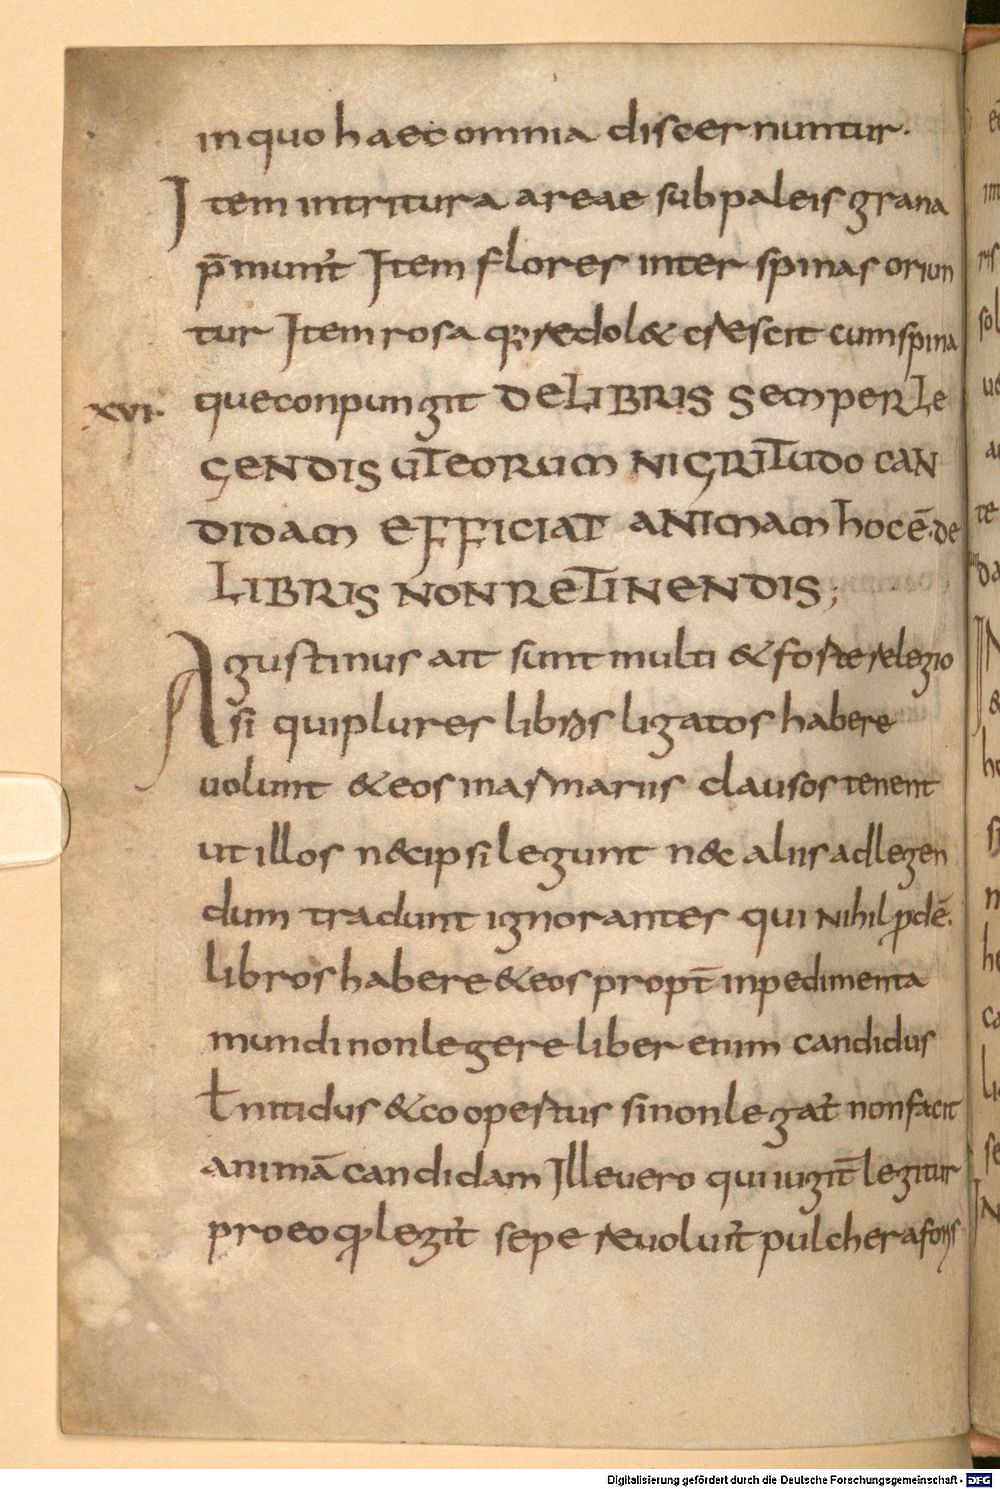 in quo haec omnia discernuntur.
Item in tritura areae sub paleis grana
p̄munt̓ Item flores inter spinas oriun
tur Item rosa q redol& crescit cum spina
XVI. que conpungit DE LIBRIS SEMPER LE
GENDIS UT EORUM NIGRITUDO CAN
DIDAM EFFICIAT ANIMAM hOC Ē. DE
LIBRIS NON RETINENDIS;
Agustinus ait sunt multi & forte relegio
si qui plures libros ligatos habere
uolunt & eos in armariis clausos tenent
ut illos n&c ipsi legunt n&c aliis ad legen
dum tradunt ignorantes qui nihil ꝓdē.
libros habere & eos propt̄ inpedimenta
mundi non legere liber enim candidus
ł nitidus & coopertus si non legat̓ non facit
animā candidam Ille uero qui iugit̄ legitur
pro eo ꝙ legit̓ sepe reuoluit̓ pulcher a foris
Digitalisierung gefördert durch die Deutsche Forschungsgemeinschaft - DFG